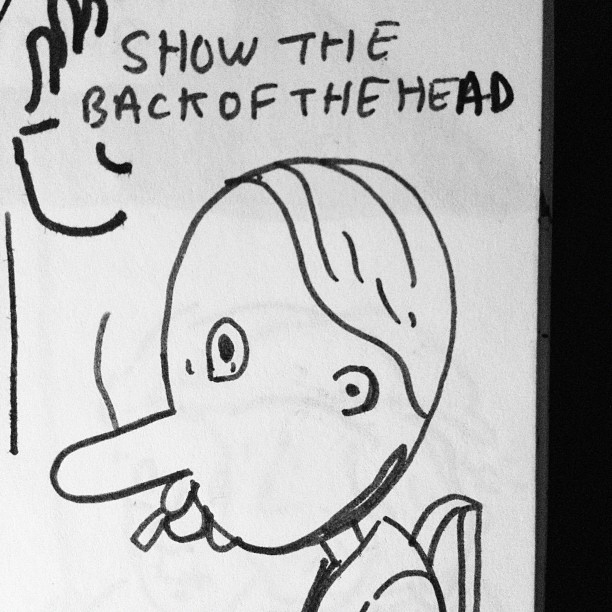 SHOW THE
BACK OF THE HEAD